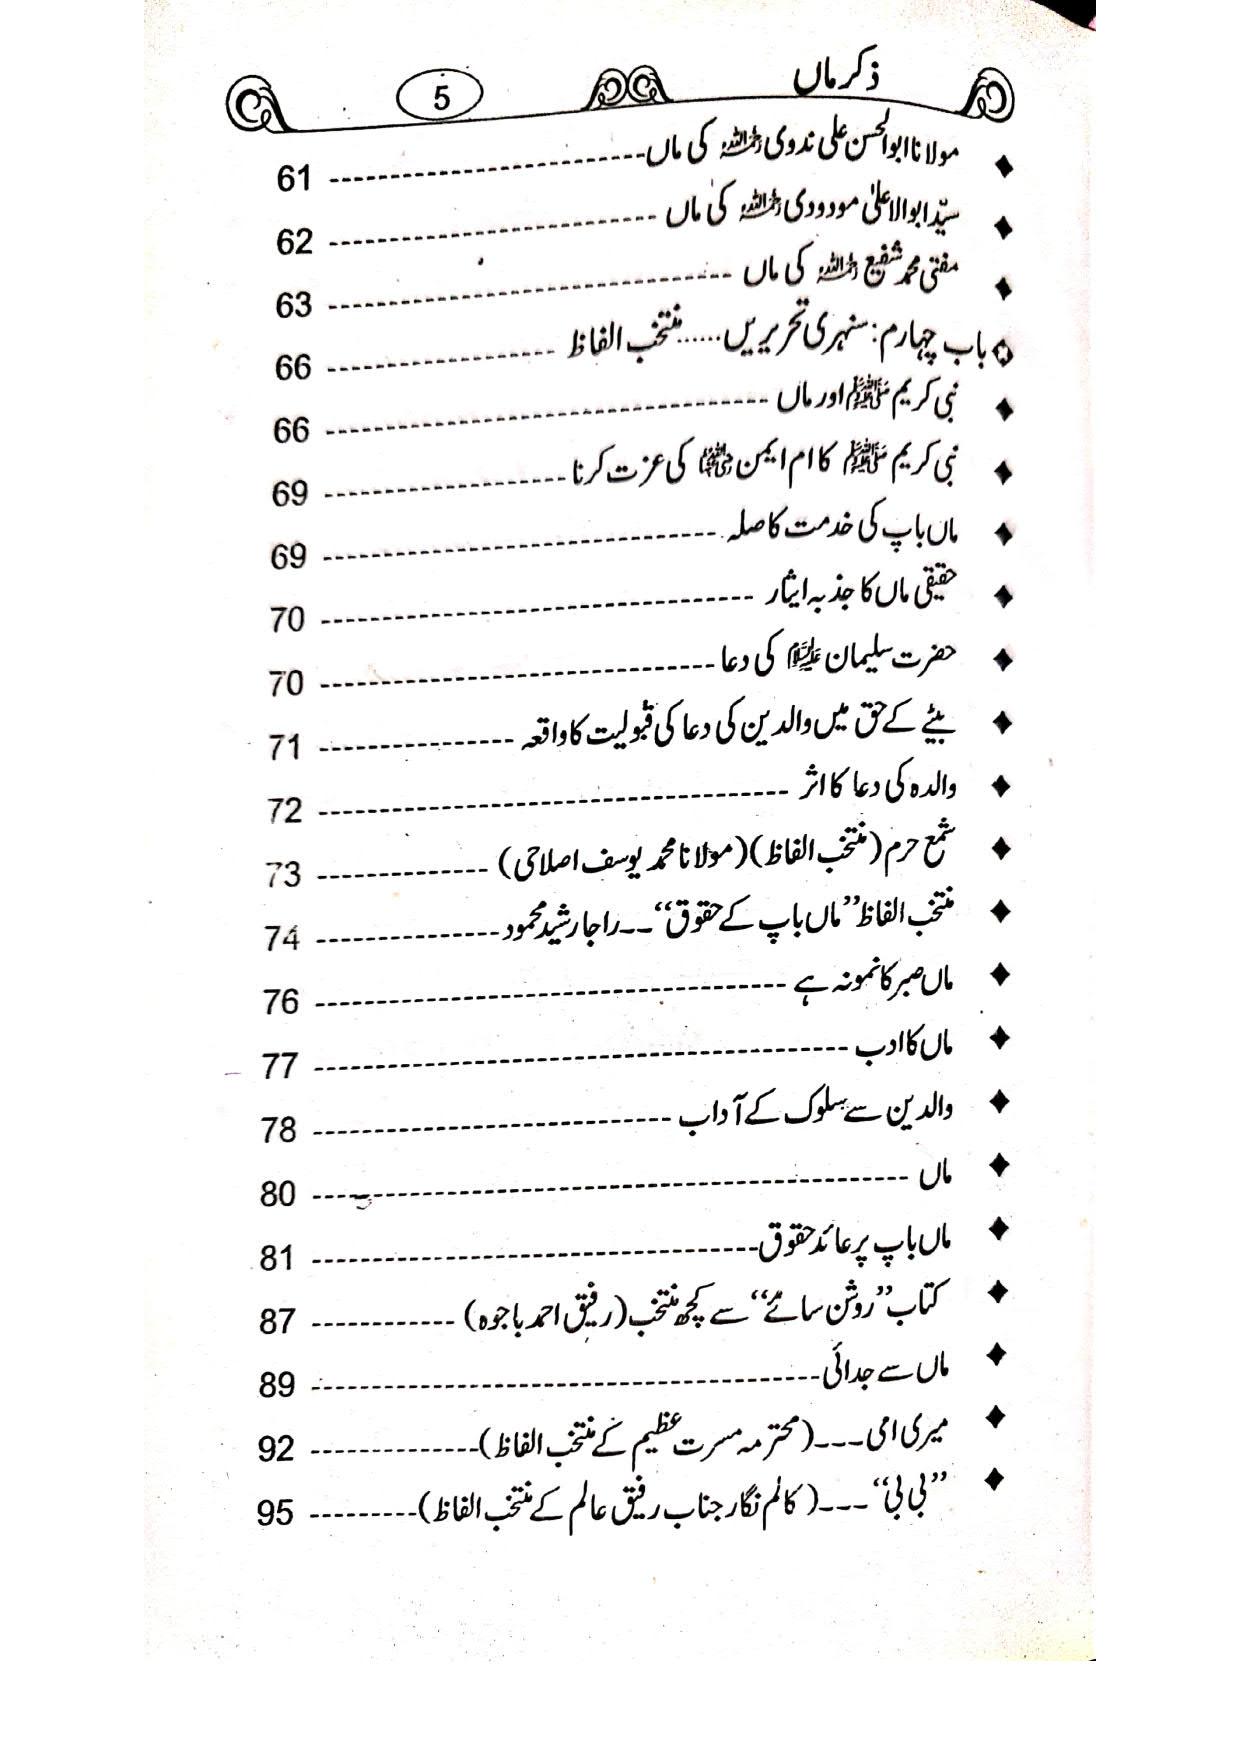 ذکر ماں 5
مولانا ابوالحسن علی ندوی رحمہ اللہ کی ماں 61
سیّد ابوالاعلیٰ مودودی رحمہ اللہ کی ماں 62
مفتی محمد شفیع رحمہ اللہ کی ماں 63
باب چہارم: سنہری تحریریں...... منتخب الفاظ 66
نبی کریم ﷺ اور ماں 66
نبی کریم ﷺ کا ام ایمن رضی اللہ عنہا کی عزت کرنا 69
ماں باپ کی خدمت کا صلہ 69
حقیقی ماں کا جذبہ ایثار 70
حضرت سلیمان علیہ السلام کی دعا 70
بیٹے کے حق میں والدین کی دعا کی قبولیت کا واقعہ 71
والدہ کی دعا کا اثر 72
شمع حرم (منتخب الفاظ) (مولانا محمد یوسف اصلاحی) 73
منتخب الفاظ ”ماں باپ کے حقوق“۔۔۔ راجا رشید محمود 74
ماں صبر کا نمونہ ہے 76
ماں کا ادب 77
والدین سے سلوک کے آداب 78
ماں 80
ماں باپ پر عائد حقوق 81
کتاب ”روشن سائے“ سے کچھ منتخب (رفیق احمد باجوہ) 87
ماں سے جدائی 89
میری امی۔۔۔ (محترمہ مسرت عظیم کے منتخب الفاظ) 92
”بی بی“ ۔۔۔ (کالم نگار جناب رفیق عالم کے منتخب الفاظ) 95